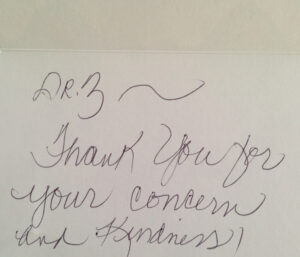 Dr. Z ~
Thank You for
your concern
and Kindness!